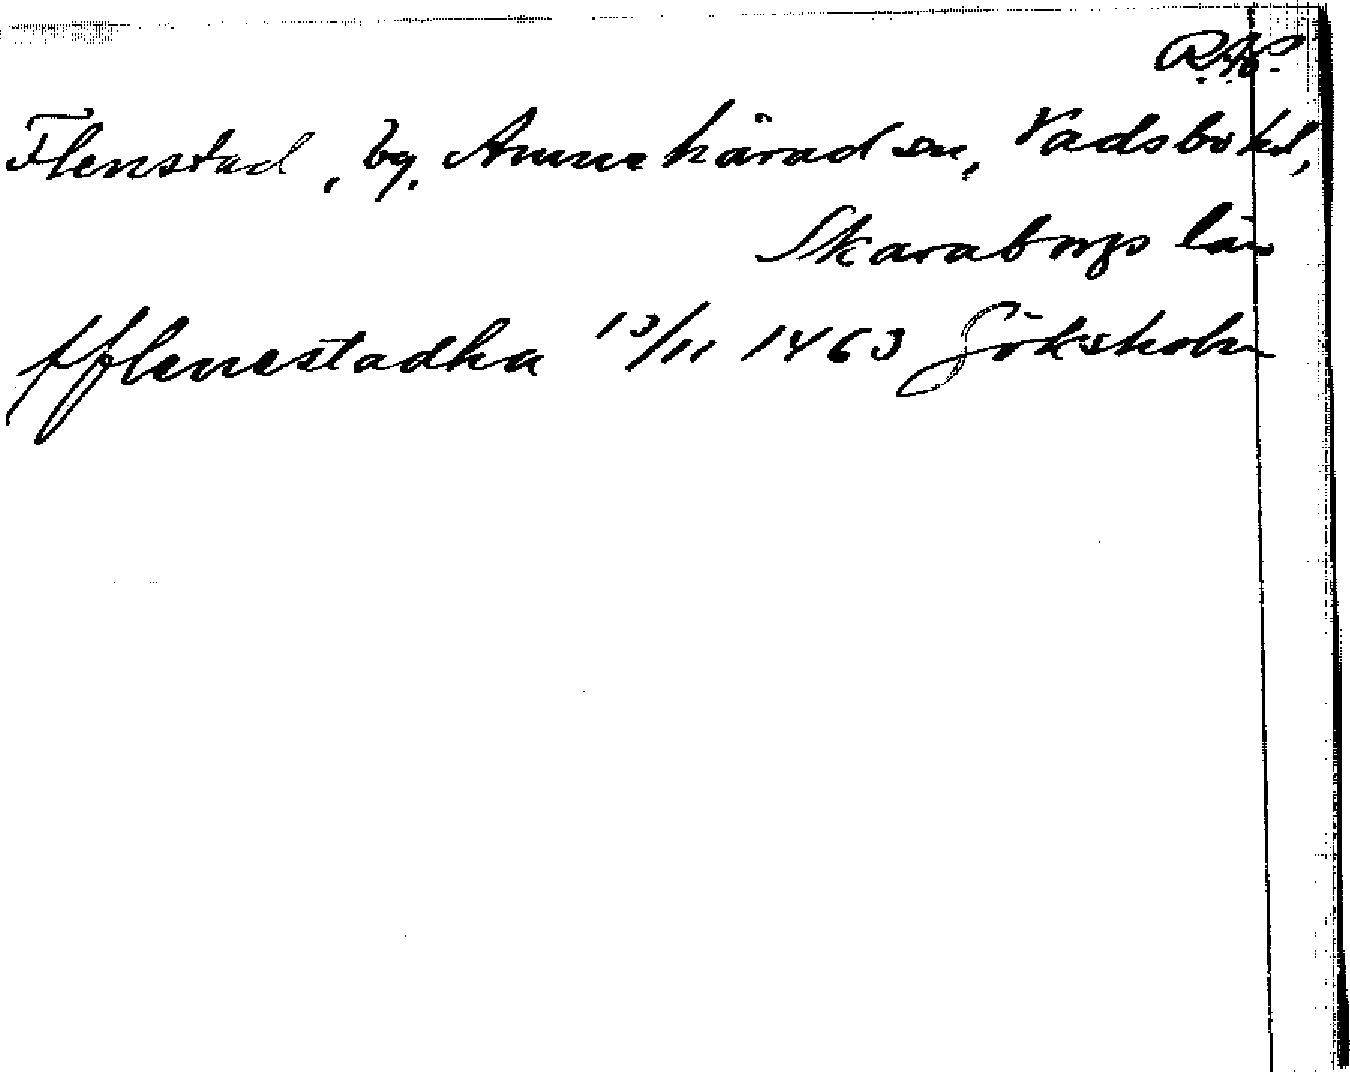 R.A.P.
Flenstad, by, Amnehärad sn, Vadsbo hd,
Skaraborgs län
fflenestadha 13/11 1463 Göksholm